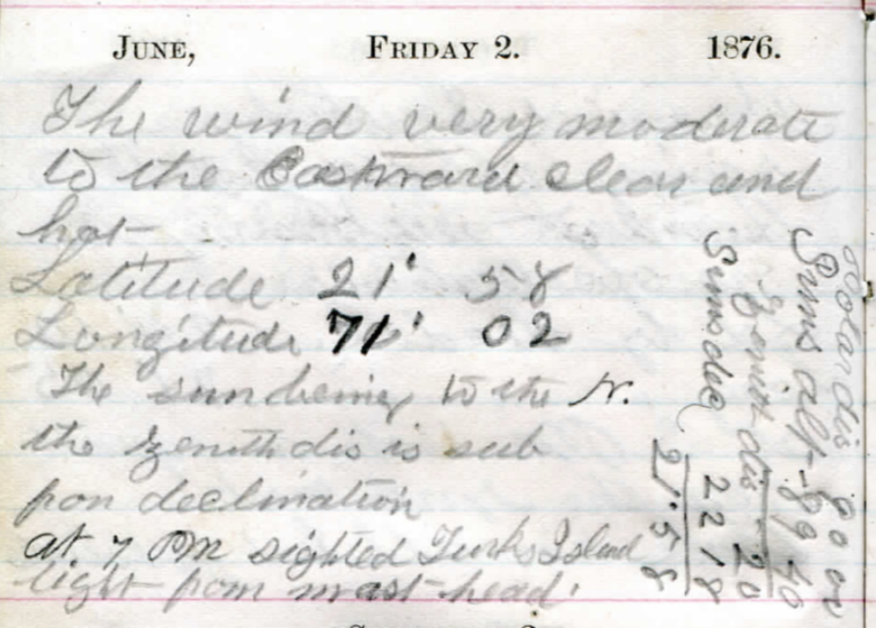 JUNE, FRIDAY 2. 1876.
The wind very moderate
to the Eastward clear and
hot
Latitude 21' 58
Longitude 71' 02
The sun being to the N.
the zenith dis is sub
from declination
at 7 PM sighted Turks Island
light from mast-head.
Polar dis 90 00
Suns alt - 89 40
Zenith dis - 20
Suns dec 22 18
21' 58